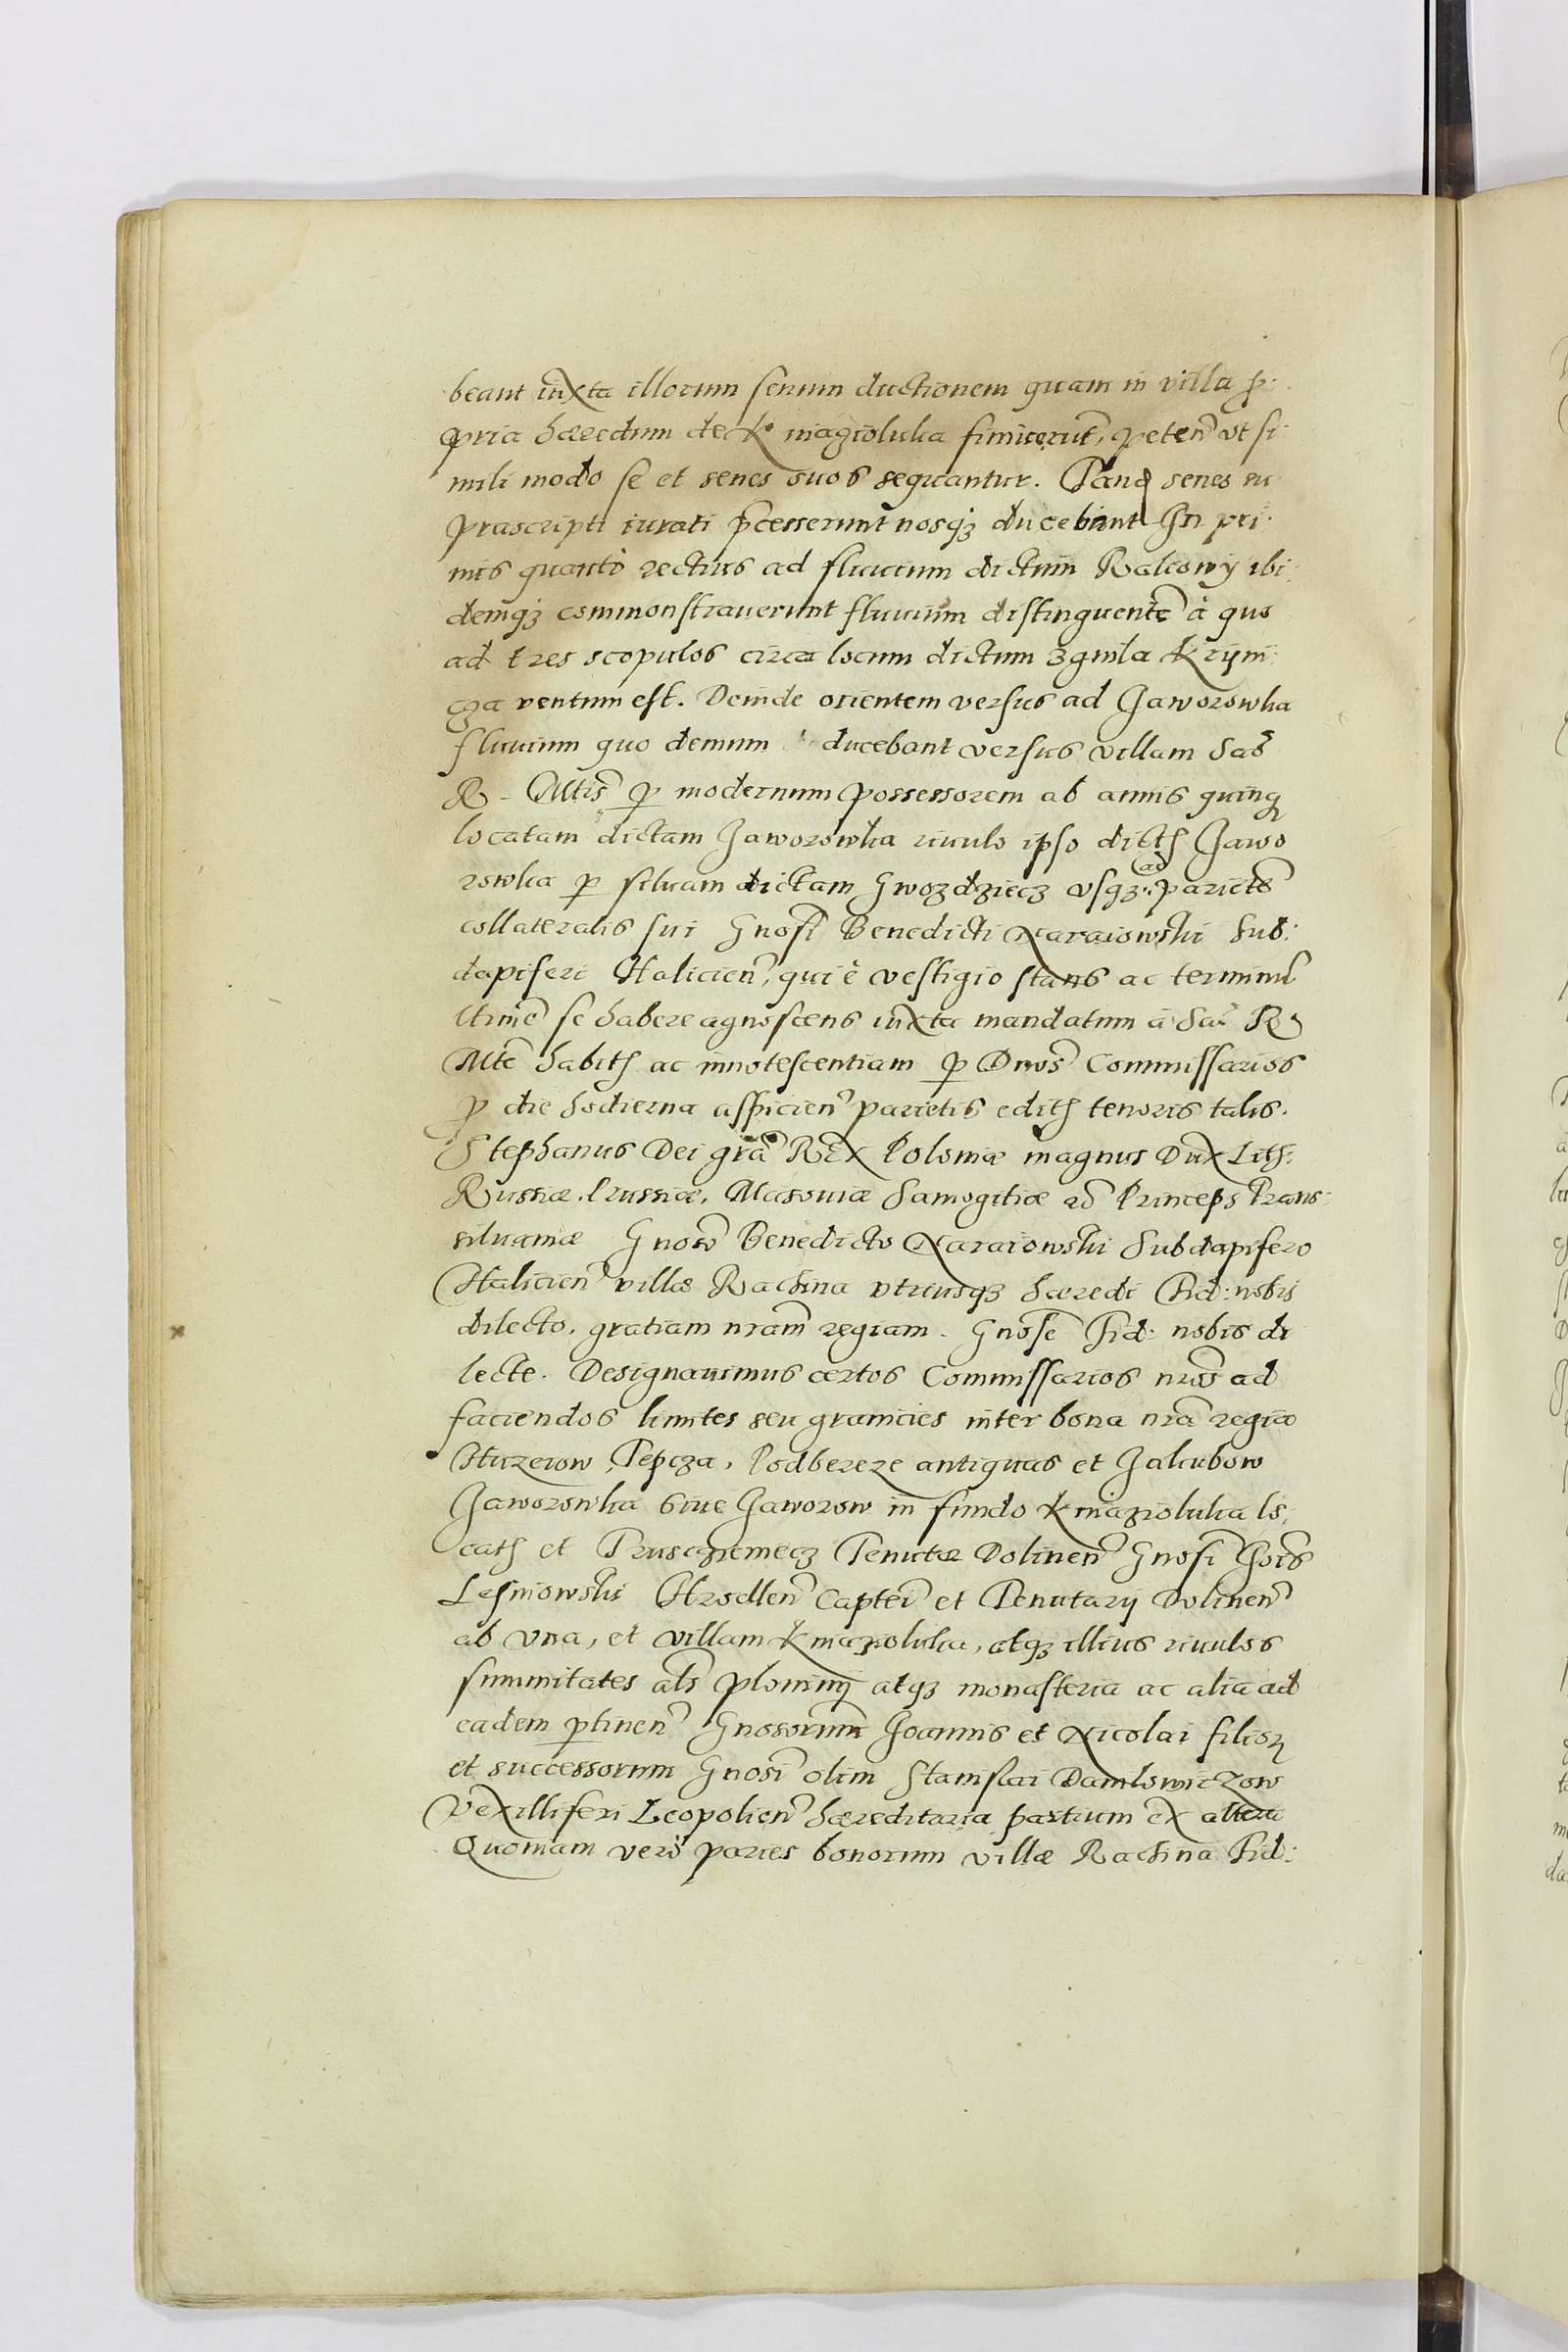 beant iuxta illorum senum ductionem quam in villa p:
pria haeredum de Kniaziolulia finiverut, peten̄ ut si:
mili modo se et senes suos sequantur. Tandē senes su
prascripti iurati p̄cesserunt nosq3 ducebant In pri:
mis quanto rectius ad fluuium dictum Rakowy ibi:
demq3 commonstrauerunt fluuium distinguentē à quo
ad tres scopulos circa locum dictum Zgniła Krynī:
cza ventum est. Deinde orientem versus ad Jaworowka
fluuium quo demum ducebant versus villam Sac̄
R. Mtis̄ p modernum possessorem ab annis quinq
locatam dictam Jaworowka riuulo ipso dicth Jawo
rowka p siluam dictam Gwozdziecz usq3 ad parietē
collateralis sui Gnosi Benedicti Naraiowski Sub:
dapiferi Halicien̄, qui è vestigio stans ac terminū
Itinē se habere agnoscens iuxta mandatum à Sac̄ R
Mtē habith ac innotescentiam p Dnos̄ Commissarios
p die hodierna aspicien̄ parietis edith tenoris talis.
Stephanus Dei grā Rex Poloniæ magnus Dux Lith:
Russiæ, Prussiæ, Masouiæ Samogitiæ ac̄ Princeps Trans:
siluaniæ Gnosō Benedicto Naraiowski Subdapifero
Halicien̄ villæ Rachina utriusq3 hæredi Fid: nobis
dilecto, gratiam nrām regiam. Gnosē Fid: nobis di
lecte. Designauimus certos Commissarios nrōs ad
faciendos limites seu granicies inter bona nrā regia
Huzeiow, Tepcza, Podbereze antiquas et Jakubow
Jaworowka siue Jaworow in fundo Kniaziolulia lo:
cath et Trusczniemecz Tenutæ Dolinen̄ Gnosi Jois̄
Lesniowski Hrodlen̄ Captei̅ et Tenutarij Dolinen̄
ab una, et villam Kniaziolulia, atq3 illius riuulos
summitates als̄ płoniny atq3 monasteria ac alia ad
eadem ptinen̄ Gnosorum Joannis et Nicolai filior
et successorum Gnosi olim Stanislai Daniłowiczow
Vexilliferi Leopolien̄ hæreditaria partium ex altera
Quoniam verò paries bonorum villæ Rachina Fid: